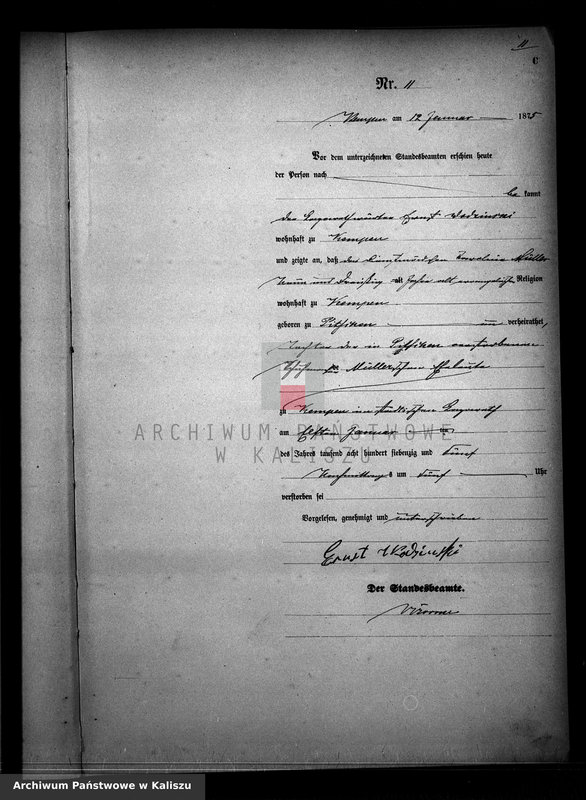 11
6
Nr. 11
Kempen am 12 Januar 1875
Vor dem unterzeichneten Standesbeamten erschien heute
der Person nach
be kannt
der Lazarethwärter Ernst Wodzinski
wohnhaft zu Kempen
und zeigte an, daß das Dienstmädchen Müller
neun und dreißig alt Jahre alt, evangelischer Religion
wohnhaft zu Kempen
geboren zu un verheirathet,
Tochter der in verstorbenen
Müllerschen Eheleute
zu Kempen im städtischen Lazareth
am elften Januar
des Jahres tausend acht hundert siebenzig und fünf
Nachmittags um fünf Uhr
verstorben sei
Vorgelesen, genehmigt und unterschrieben
Ernst Wodzinski
Der Standesbeamte.
ARCHIWUM PAŃSTWOWE
W KALISZU
Archiwum Państwowe w Kaliszu